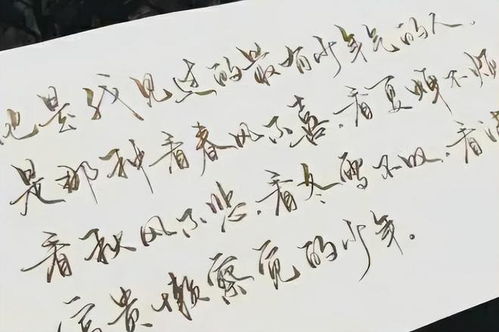 他是我见过的最有少年气的人.
是那种看春风不喜,看夏蝉不烦
看秋风不悲,看冬雪不叹,看满
富贵懒察觉的少年。